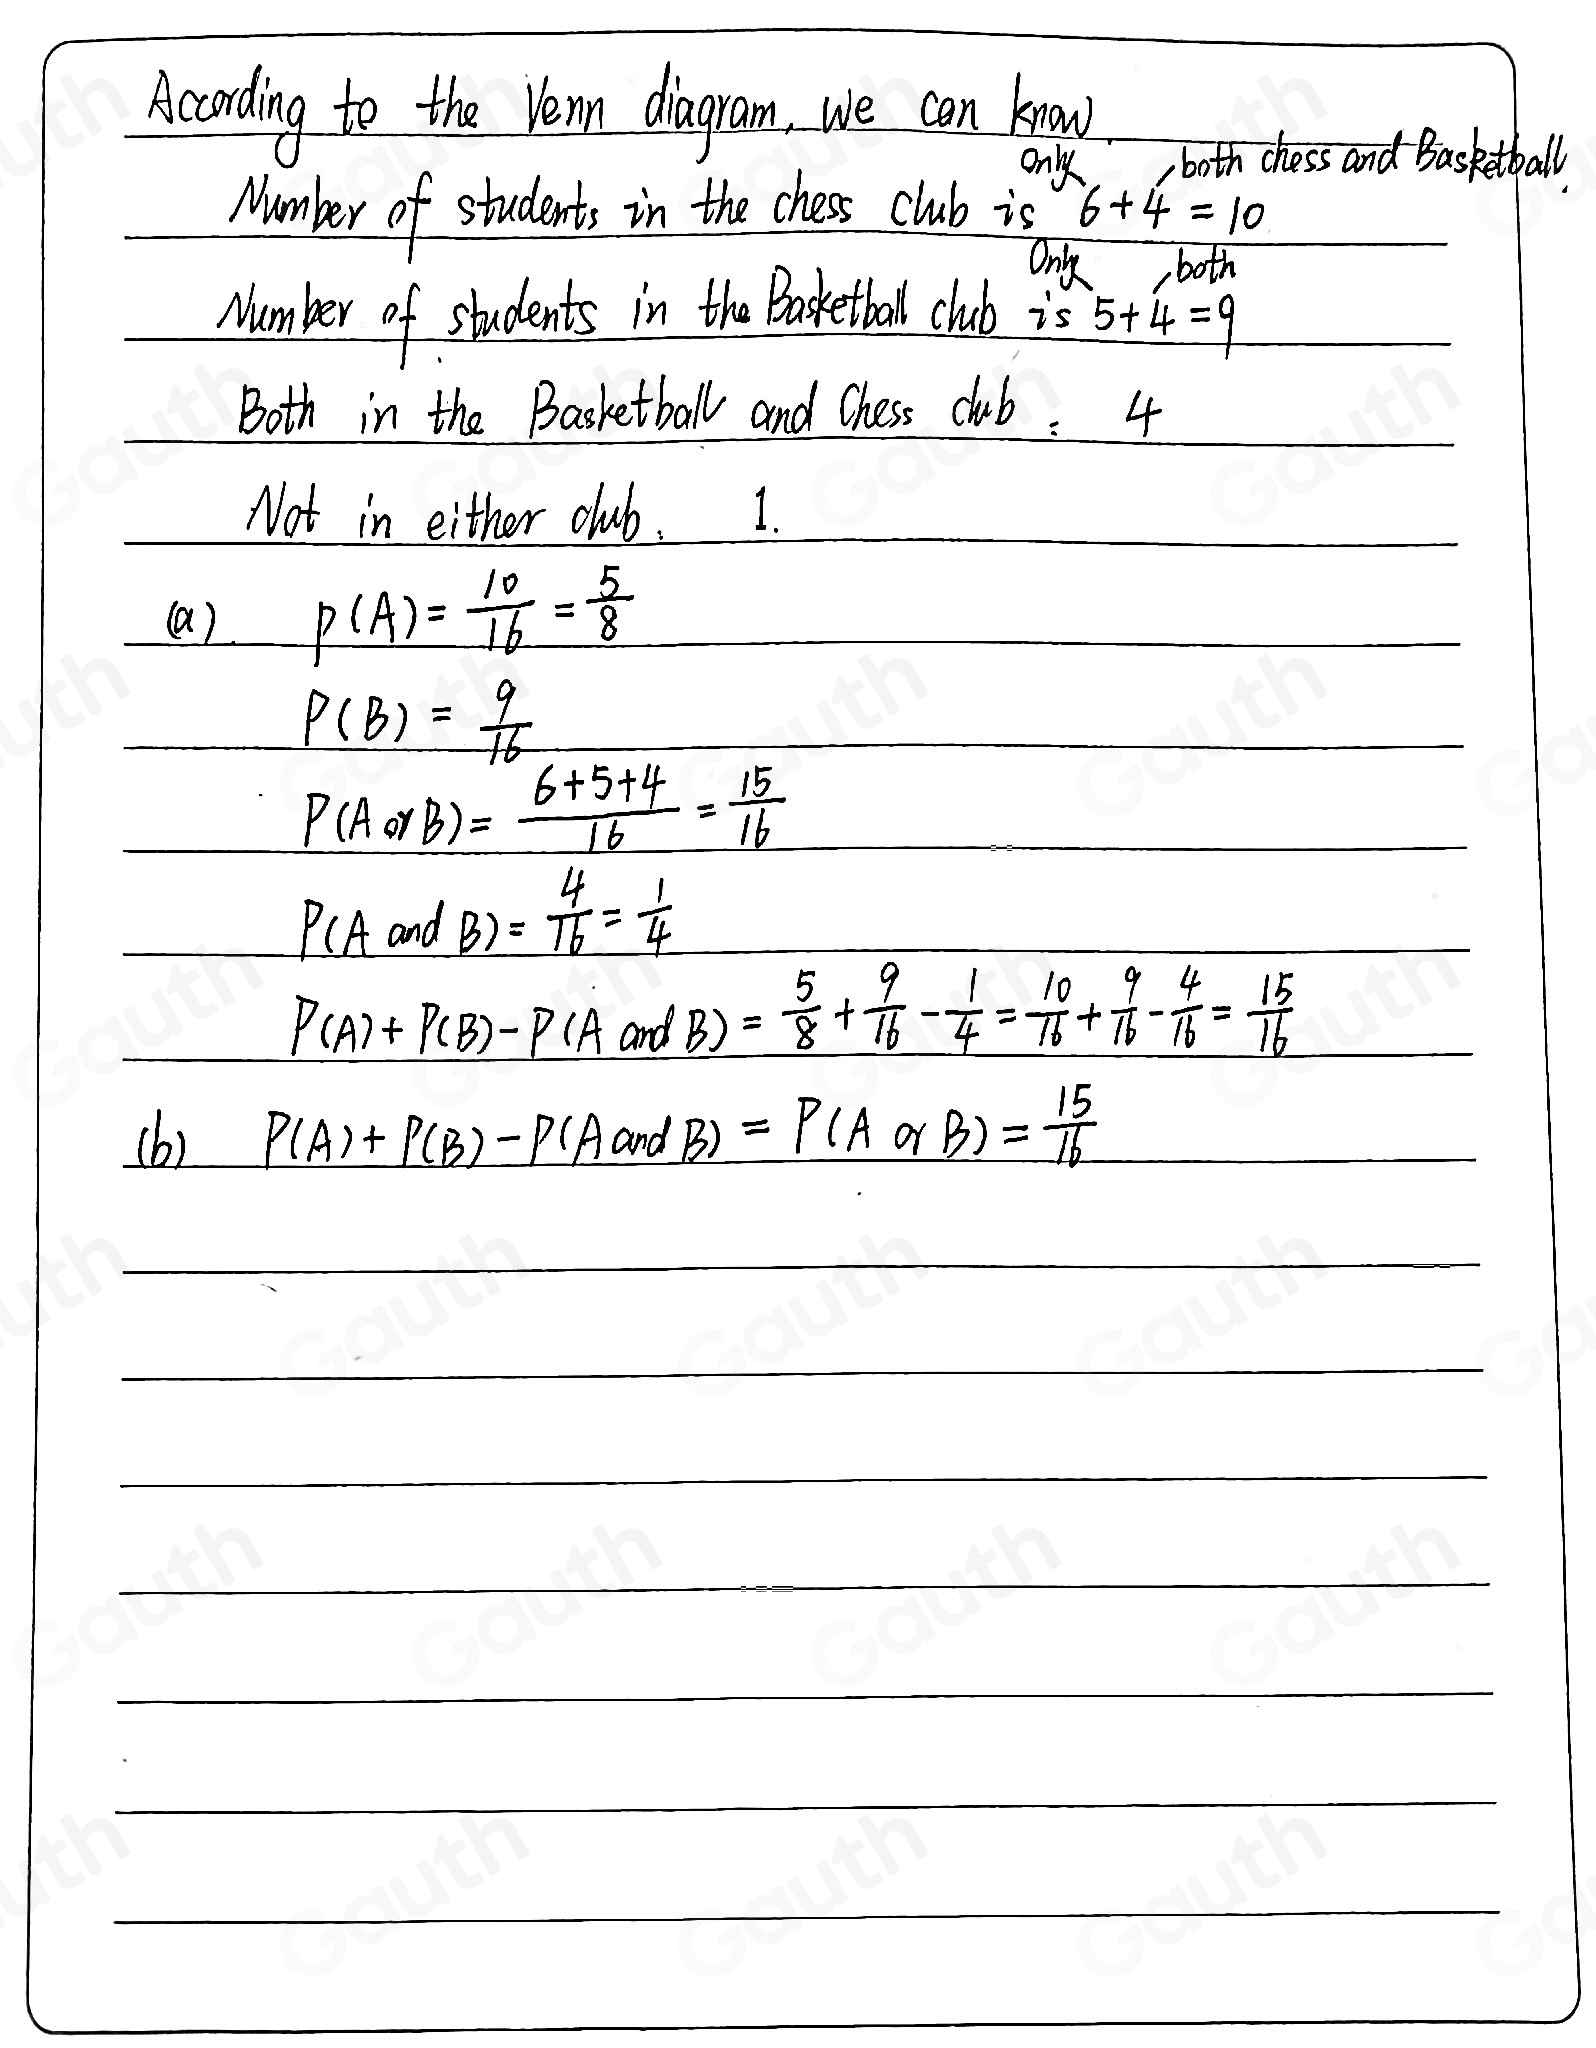 According to the Venn diagram, we can know
Only both chess and Basketball.
Number of students in the chess club is 6+4 = 10
Only both
Number of students in the Basketball club is 5+4 = 9
Both in the Basketball and Chess club : 4
Not in either club : 1.
(a). p(A) = 10/16 = 5/8
P(B) = 9/16
P(A or B) = 6+5+4/16 = 15/16
P(A and B) = 4/16 = 1/4
P(A) + P(B) - P(A and B) = 5/8 + 9/16 - 1/4 = 10/16 + 9/16 - 4/16 = 15/16
(b) P(A) + P(B) - P(A and B) = P(A or B) = 15/16
Gauth